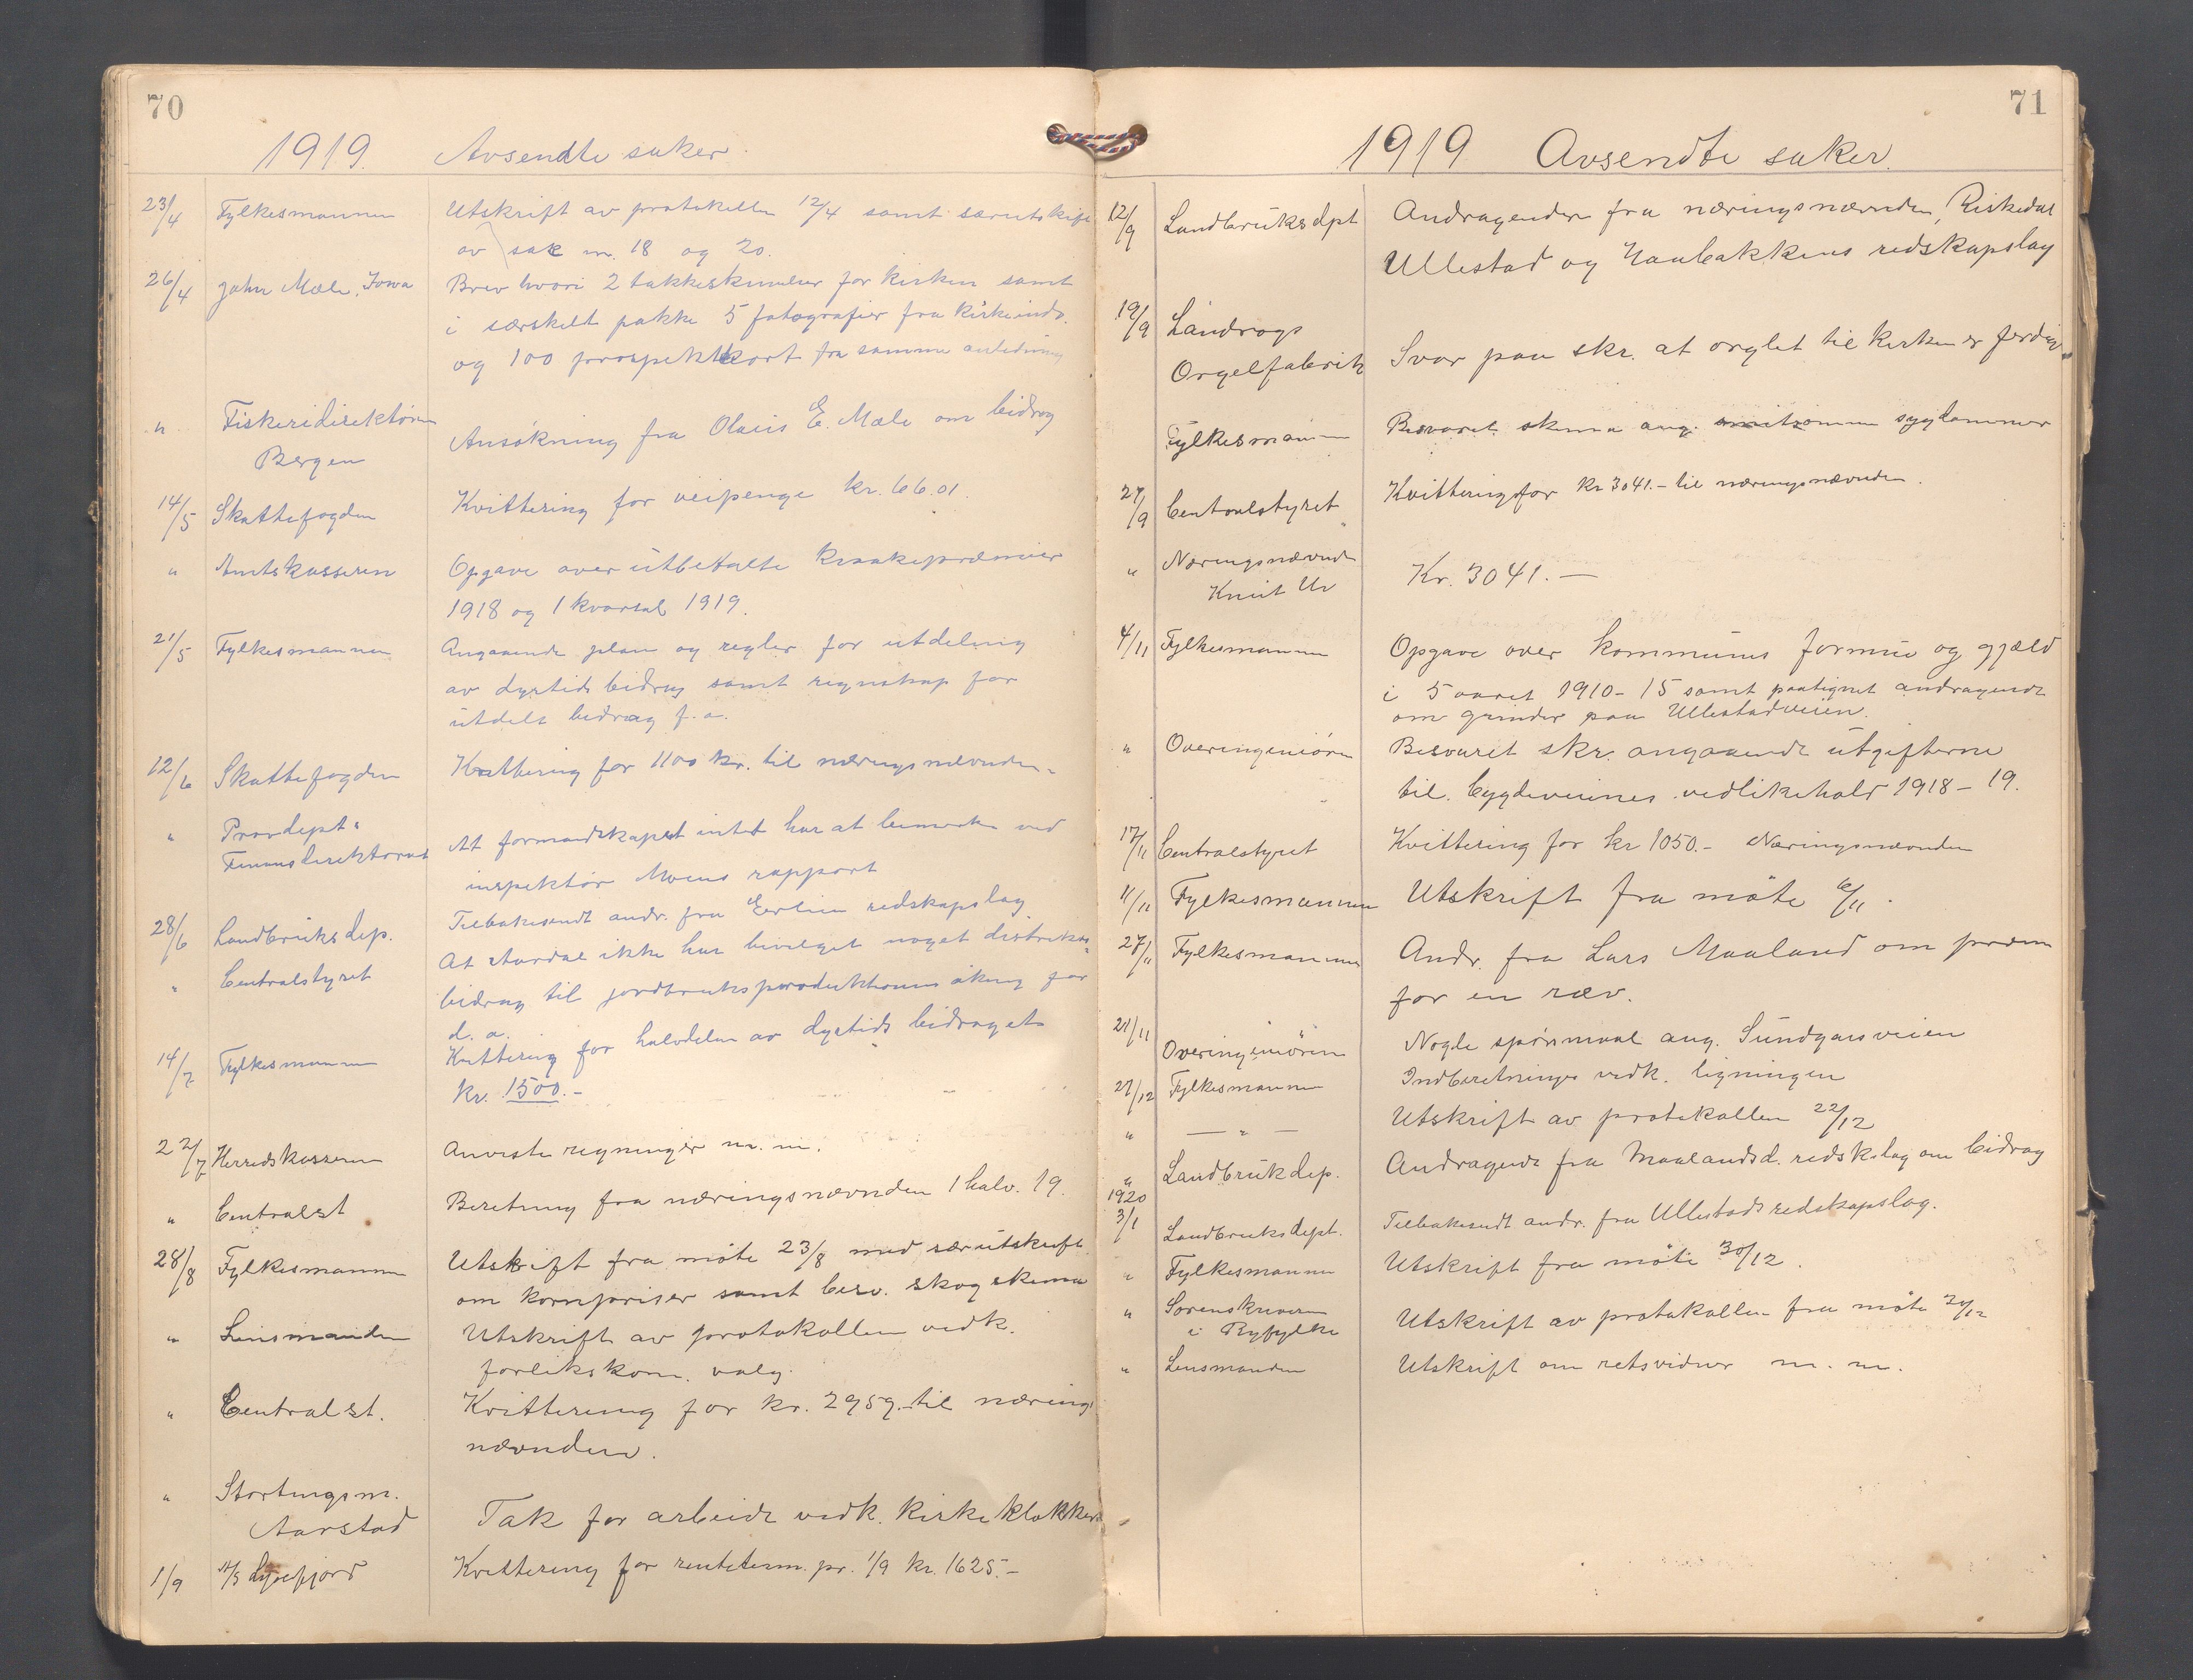 70
1919. Avsendte saker.
23/4 Fylkesmannen Utskrift av protokollen 12/4 samt særutskrift
av sak nr. 18 og 20.
26/4 John Mæle, Iowa Brev hvori 2 takkeskrivelser for kirken samt
i særskilt pakke 5 fotografier fra kirkeindv.
og 100 prospektkort fra samme anledning
" Fiskeridirektøren
Bergen
Ansökning fra Olaus E. Mæle om bidrag
14/5 Skattefogden Kvittering for veipenge kr. 66.01.
" Amtskasseren Opgave over utbetalte kraakepræmier
1918 og 1 kvartal 1919.
21/5 Fylkesmannen Angaaende plan og regler for utdeling
av dyrtidsbidrag samt regnskap for
utdelt bidrag f. a.
12/6 Skattefogden Kvittering for 1100 kr. til næringsnævnden.
" Provdept.
Finansdirektoratet
At formandskapet intet har at bemerke ved
inspektör Moens rapport
28/6 Landbruksdep. Tilbakesendt andr. fra redskapslag
" Centralstyret At Aardal ikke har bevilget noget distrikts-
bidrag til jordbruksproduktionens økning for
d. a.
14/7 Fylkesmannen Kvittering for halvdelen av dyrtidsbidraget
kr. 1500.-
22/7 Herredskasseren Anviste regninger m. m.
" Centralst Beretning fra næringsnævnden 1 halv. 19.
28/8 Fylkesmannen Utskrift fra möte 23/8 med særutskrift
om kornpriser samt besv. skogskema
" Lensmanden Utskrift av protokollen vedk.
forlikskom. valg.
" Centralst. Kvittering for kr. 2959.- til nærings
nævnden.
" Stortingsm.
Aarstad
Tak for arbeide vedk. kirkeklokken
1/9 A/S Lysefjord Kvittering for renteterm. pr. 1/9 kr. 1625.-
71
1919 Avsendte saker.
12/9 Landbruksdpt Andragender fra næringsnævnden, Riskedal
Ullestad og Haubakkens redskapslag
19/9 Landrogs
Orgelfabrik Svar paa skr. at orglet til kirken er ferdig
Fylkesmannen Besvaret skema ang. smitsomme sygdommer
27/9 Centralstyret Kvittering for kr 3041.- til næringsnævnden.
" Næringsnævnde
Knut Ur
Kr. 3041.-
4/11 Fylkesmannen Opgave over kommunens formue og gjæld
i 5 aaret 1910-15 samt paategnet andragende
om grinder paa Ullestadveien.
" Overingeniören Besvaret skr. angaaende utgifterne
til bygdeveienes vedlikehold 1918-19.
17/11 Centralstyret Kvittering for kr 1050.- Næringsnævnden
11/11 Fylkesmannen Utskrift fra möte 6/11.
27/11 Fylkesmannen Andr. fra Lars Maaland om præm
for en ræv.
21/11 Overingeniören Nogle spörsmaal ang. Sundgarsveien
27/12 Fylkesmannen Indberetninger vedk. ligningen
" — " — Utskrift av protokollen 22/12
" Landbrukdep. Andragende fra Maalandsd. redsk.lag om bidrag
1920
3/1 Landbruksdept. Tilbakesendt andr. fra Ullestads redskapslag.
" Fylkesmannen Utskrift fra möte 30/12.
" Sorenskriveren
i Ryfylke
Utskrift av protokollen fra möte 30/12
" Lensmanden Utskrift om retsvidner m. m.